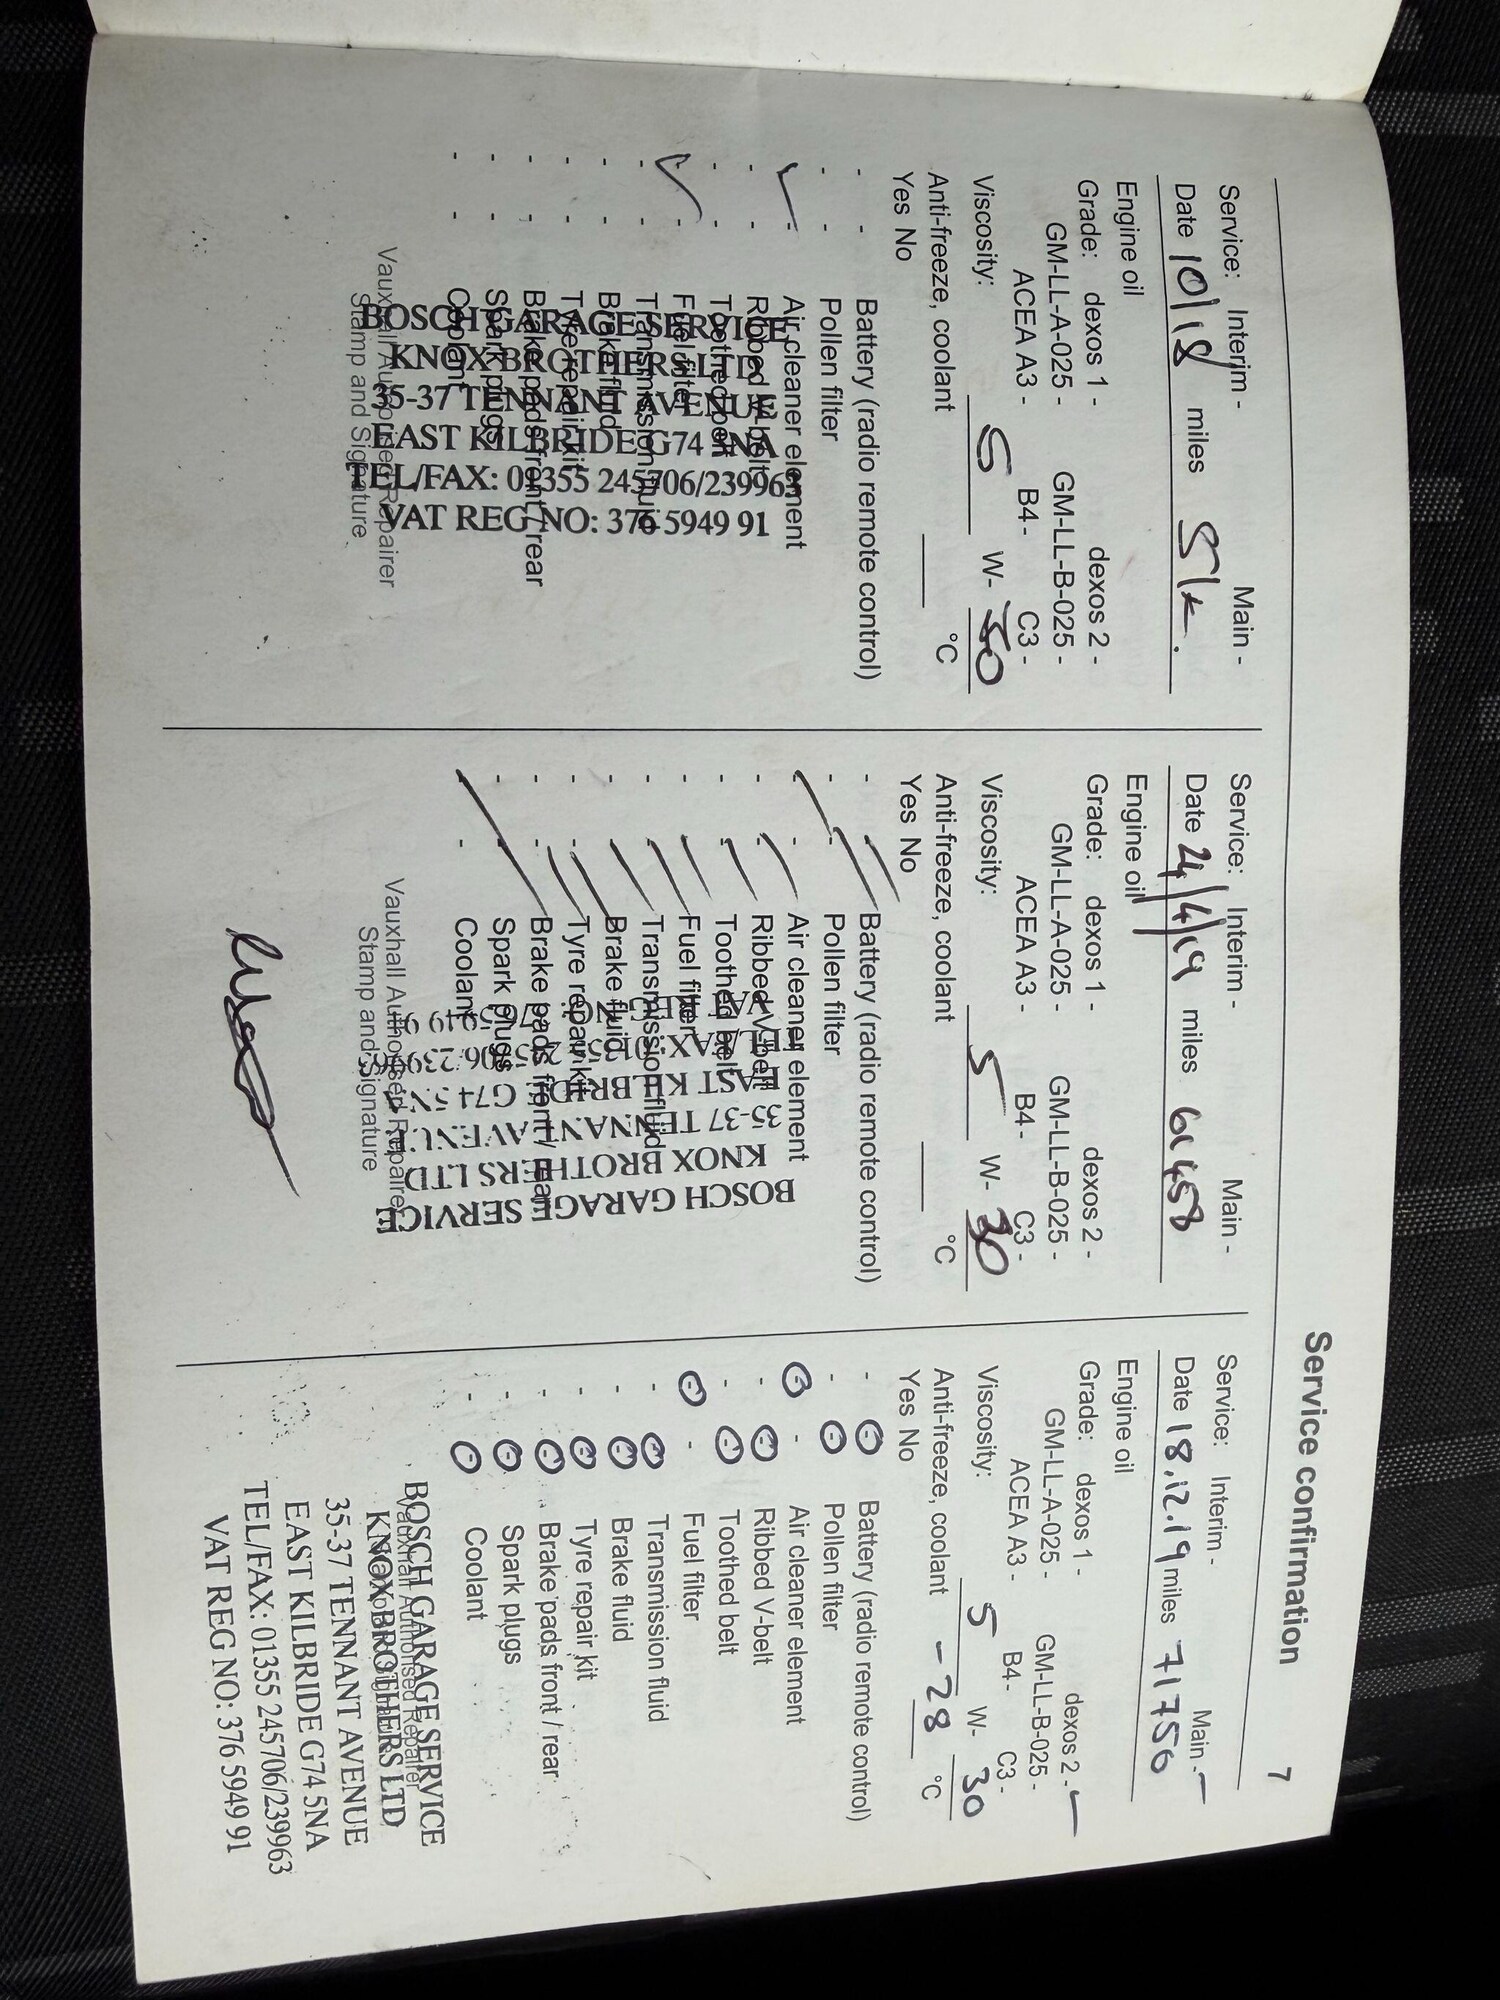 Service confirmation 7
Service: Interim - Main -
Date 10/18 miles 51k.
Engine oil
Grade: dexos 1 - dexos 2 -
GM-LL-A-025 - GM-LL-B-025 -
ACEA A3 - B4 - C3 -
Viscosity: 5 W- 30
Anti-freeze, coolant °C
Yes No
- - Battery (radio remote control)
- - Pollen filter
✓ - Air cleaner element
- - Ribbed V-belt
- - Toothed belt
✓ - Fuel filter
- - Transmission fluid
- - Brake fluid
- - Tyre repair kit
- - Brake pads front / rear
- - Spark plugs
- - Coolant
Vauxhall Authorised Repairer
Stamp and Signature
BOSCH GARAGE SERVICE
KNOX BROTHERS LTD
35-37 TENNANT AVENUE
EAST KILBRIDE G74 5NA
TEL/FAX: 01355 245706/239963
VAT REG NO: 376 5949 91
Service: Interim - Main -
Date 24/4/19 miles 61458
Engine oil
Grade: dexos 1 - dexos 2 -
GM-LL-A-025 - GM-LL-B-025 -
ACEA A3 - B4 - C3 -
Viscosity: 5 W- 30
Anti-freeze, coolant °C
Yes No
Battery (radio remote control)
Pollen filter
Air cleaner element
Ribbed V-belt
Toothed belt
Fuel filter
Transmission fluid
Brake fluid
Tyre repair kit
Brake pads front / rear
Spark plugs
Coolant
Vauxhall Authorised Repairer
Stamp and Signature
BOSCH GARAGE SERVICE
KNOX BROTHERS LTD
35-37 TENNANT AVENUE
EAST KILBRIDE G74 5NA
TEL/FAX: 01355 245706/239963
VAT REG NO: 376 5949 91
Service: Interim - Main -
Date 18.12.19 miles 71750
Engine oil
Grade: dexos 1 - dexos 2 -
GM-LL-A-025 - GM-LL-B-025 -
ACEA A3 - B4 - C3 -
Viscosity: 5 W- 30
Anti-freeze, coolant -28 °C
Yes No
Battery (radio remote control)
Pollen filter
Air cleaner element
Ribbed V-belt
Toothed belt
Fuel filter
Transmission fluid
Brake fluid
Tyre repair kit
Brake pads front / rear
Spark plugs
Coolant
Vauxhall Authorised Repairer
BOSCH GARAGE SERVICE
KNOX BROTHERS LTD
35-37 TENNANT AVENUE
EAST KILBRIDE G74 5NA
TEL/FAX: 01355 245706/239963
VAT REG NO: 376 5949 91